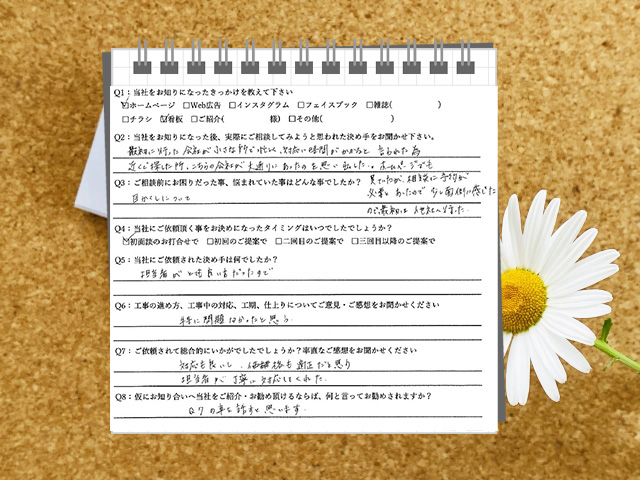 Q1：当社をお知りになったきっかけを教えて下さい
☑ホームページ □Web広告 □インスタグラム □フェイスブック □雑誌(　　　)
□チラシ ☑看板 □ご紹介(　　　様) □その他(　　　)
Q2：当社をお知りになった後、実際にご相談してみようと思われた決め手をお聞かせ下さい。
最初に行った会社が小さな所で忙しく、対応に時間がかかると言われた為
近くで探した所、こちらの会社が大通りにあったのを思い出した。ホームページでも
見ていたが、相談に予約が
必要とあったので少し面倒に感じた
ので最初は他社へ行った。
Q3：ご相談前にお困りだった事、悩まれていた事はどんな事でしたか？
目かくしについて
Q4：当社にご依頼頂く事をお決めになったタイミングはいつでしたでしょうか？
☑初面談のお打合せで □初回のご提案で □二回目のご提案で □三回目以降のご提案で
Q5：当社にご依頼された決め手は何でしたか？
担当者がとても良い方だったので
Q6：工事の進め方、工事中の対応、工期、仕上りについてご意見・ご感想をお聞かせください
特に問題なかったと思う。
Q7：ご依頼されて総合的にいかがでしたでしょうか？率直なご感想をお聞かせください
対応も良いし、価格も適正だと思う
担当者が丁寧に対応してくれた。
Q8：仮にお知り合いへ当社をご紹介・お勧め頂けるならば、何と言ってお勧めされますか？
Q7の事を話すと思います。